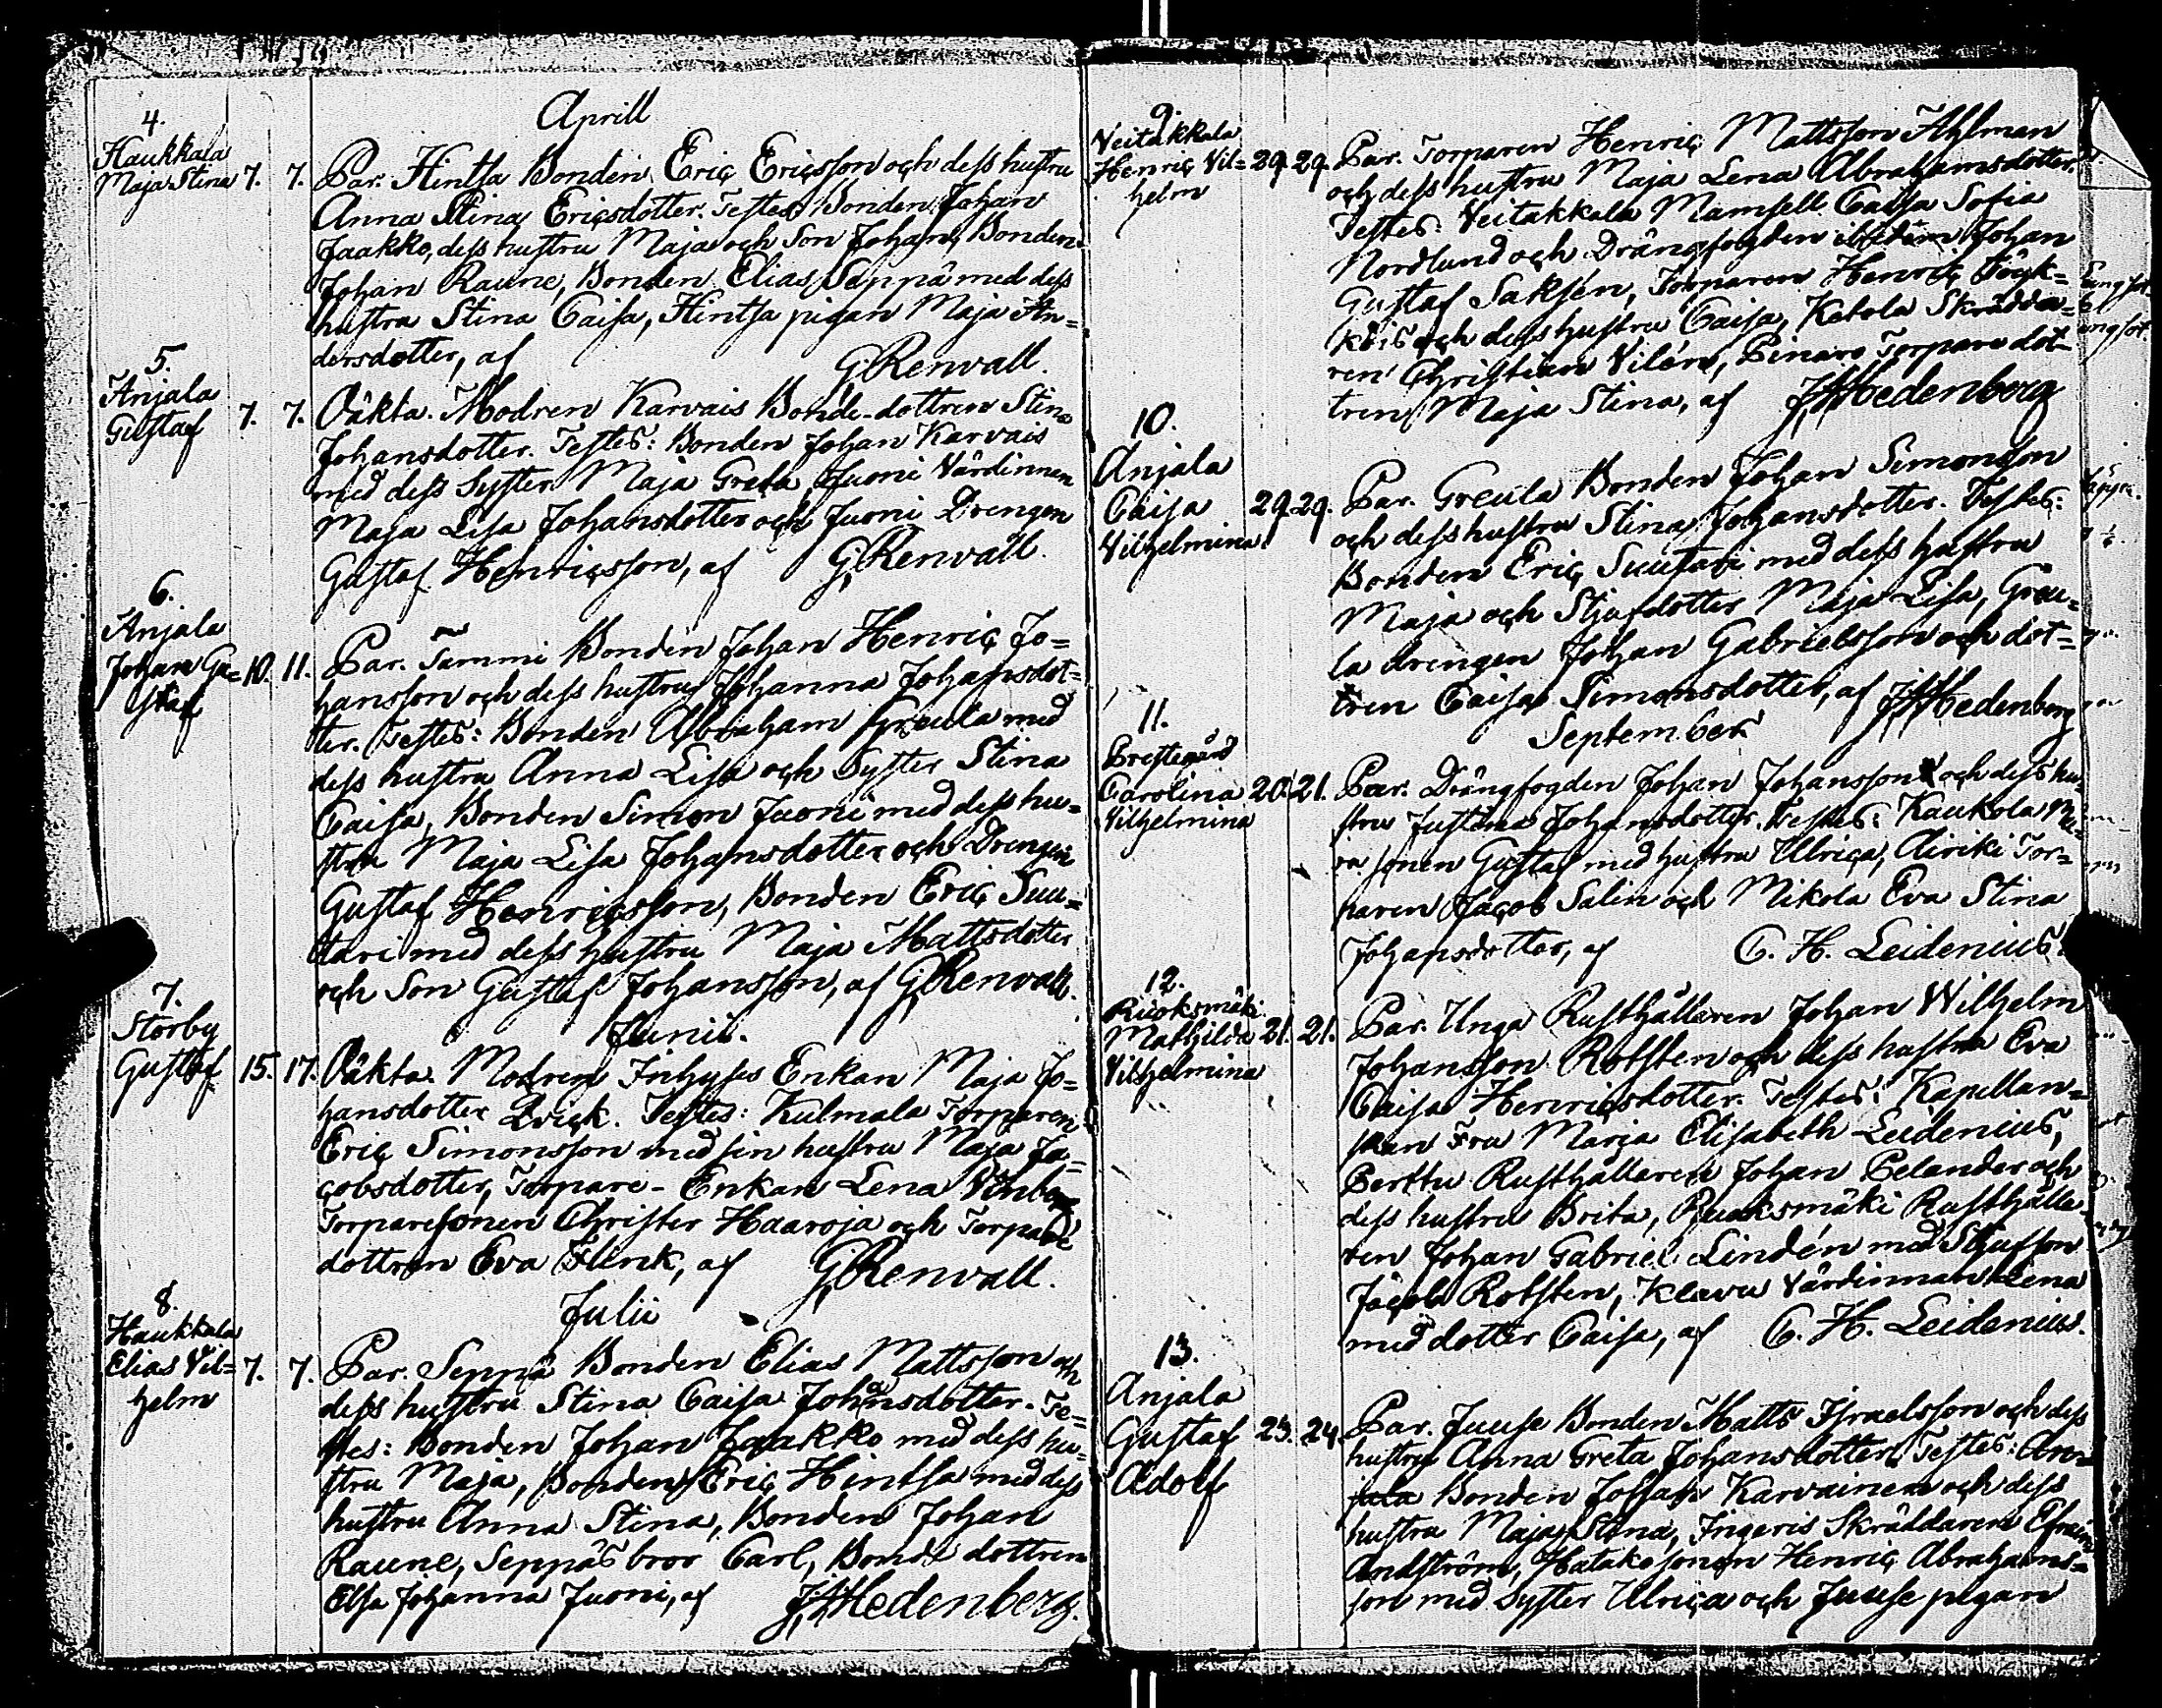 Aprill
4.
Haukkala
Maja Stina 7. 7. Par. Hintsa Bonden Eriç Ericsson och dess hustru
Anna Stina Ericsdotter. Testes Bonden Johan
Jaakko, dess hustru Maja och Son Johan, Bonden
Johan Raune, Bonden Elias Seppä med dess
hustru Stina Caisa, Hintsa pigan Maja An=
dersdotter, af G Renvall.
5.
Anjala
Gustaf 7. 7. Oäkta. Modren Karvais Bonde-dottren Stina
Johansdotter. Testes: Bonden Johan Karvais
med dess Syster Maja Greta Juoni Värdinnan
Maja Lisa Johansdotter och Juoni Drengen
Gustaf Henricsson, af G Renvall.
6.
Anjala
Johan Gu=
staf 10. 11. Par. Tammi Bonden Johan Henric Jo=
hansson och dess hustru Johanna Johansdot=
ter. Testes: Bonden Abraham Greula med
dess hustru Anna Lisa och Syster Stina
Caisa, Bonden Simon Juoni med dess hu=
stru Maja Lisa Johansdotter och Drengen
Gustaf Henricsson, Bonden Eric Suu=
tari med dess hustru Maja Mattsdotter
och Son Gustaf Johansson, af G Renvall.
Junii.
7.
Storby
Gustaf 15. 17. Oäkta. Modren Inhyses Enkan Maja Jo=
hansdotter Qvick. Testes: Kulmala Torparen
Eric Simonsson med sin hustru Maja Ja=
cobsdotter, Torpare-Enkan Lena
Torparesonen Christer Haaroja och Torpare
dottren Eva Flink, af G Renvall.
Julii
8.
Haukkala
Elias Vil=
helm 7. 7. Par. Seppä Bonden Elias Mattsson och
dess hustru Stina Caisa Johansdotter. Te=
stes: Bonden Johan Jaakko med dess hu=
stru Maja, Bonden Eric Hintsa med dess
hustru Anna Stina, Bonden Johan
Raune, Seppäs bror Carl, Bonde dottren
Elsa Johanna Juoni, af Hedenberg.
9.
Veitakkala
Henric Vil=
helm 29. 29. Par. Torparen Henric Mattsson Ahlman
och dess hustru Maja Lena Abrahamsdotter.
Testes: Veitakkala Mamsell Caisa Sofia
Nordlund och Drängfogden Johan
Gustaf Saksén, Torparen Henric
och dess hustru Caisa, Ketola Skrädda=
ren Christian Vilén, Torpare dot=
tren Maja Stina, af Hedenberg
10.
Anjala
Caisa
Vilhelmina 29. 29. Par. Greula Bonden Johan Simonsson
och dess hustru Stina Johansdotter. Testes:
Bonden Eric Suutari med dess hustru
Maja och Stjufdotter Maja Lisa, Greu=
la drengen Johan Gabrielsson och dot=
tren Caisa Simonsdotter, af Hedenberg
September
11.
Prestegård
Carolina
Vilhelmina 20. 21. Par. Drängfogden Johan Johansson och dess hu=
stru Justina Johansdotter. Testes: Kaukola
sonen Gustaf med hustru Ulrica, Airiki Tor=
paren Jacob Salin och Mikola Eva Stina
Johansdotter, af C. H. Leidenius.
12.
Ruoksmäki
Mathilda
Vilhelmina 21. 21. Par. Unga Rusthållaren Johan Wilhelm
Johansson Rotsten och dess hustru Eva
Caisa Henricsdotter. Testes: Kapellan=
skan Fru Maria Elisabeth Leidenius,
Perttu Rusthållaren Johan Pelander och
dess hustru Brita, Ruoksmäki Rusthålla=
ren Johan Gabriel Lindén med Stjufson
Jacob Rotsten, Klavu Värdinnan Lena
med dotter Caisa, af C. H. Leidenius.
13.
Anjala
Gustaf
Adolf 23. 24. Par. Juuse Bonden Matts Israelsson och dess
hustru Anna Greta Johansdotter. Testes:
Bonden Johan Karvainen och dess
hustru Maja Stina, Ingeris Skräddaren Efraim
Andström, Hatakosonen Henric Abrahams=
son med Syster Ulrica och Juuse pigan